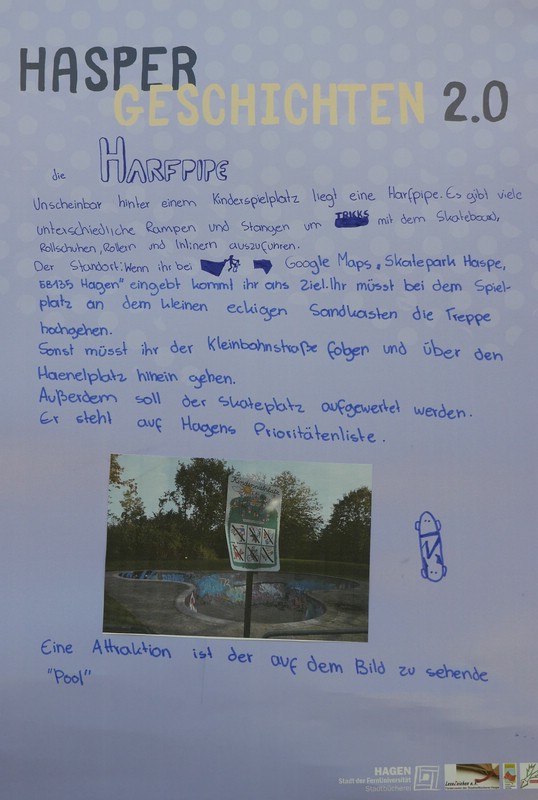 HASPER
GESCHICHTEN 2.0
die HARFPIPE
Unscheinbar hinter einem Kinderspielplatz liegt eine Harfpipe. Es gibt viele
unterschiedliche Rampen und Stangen um TRICKS mit dem Skateboard,
Rollschuhen, Rollern und Inlinern auszuführen.
Der Standort: Wenn ihr bei Google Maps „Skatepark Haspe,
58135 Hagen" eingebt kommt ihr ans Ziel. Ihr müsst bei dem Spiel-
platz an dem kleinen eckigen Sandkasten die Treppe
hochgehen.
Sonst müsst ihr der Kleinbahnstraße folgen und über den
Haenelplatz hinein gehen.
Außerdem soll der Skateplatz aufgewertet werden.
Er steht auf Hagens Prioritätenliste.
Eine Attraktion ist der auf dem Bild zu sehende
"Pool"
HAGEN
Stadt der FernUniversität
Stadtbücherei